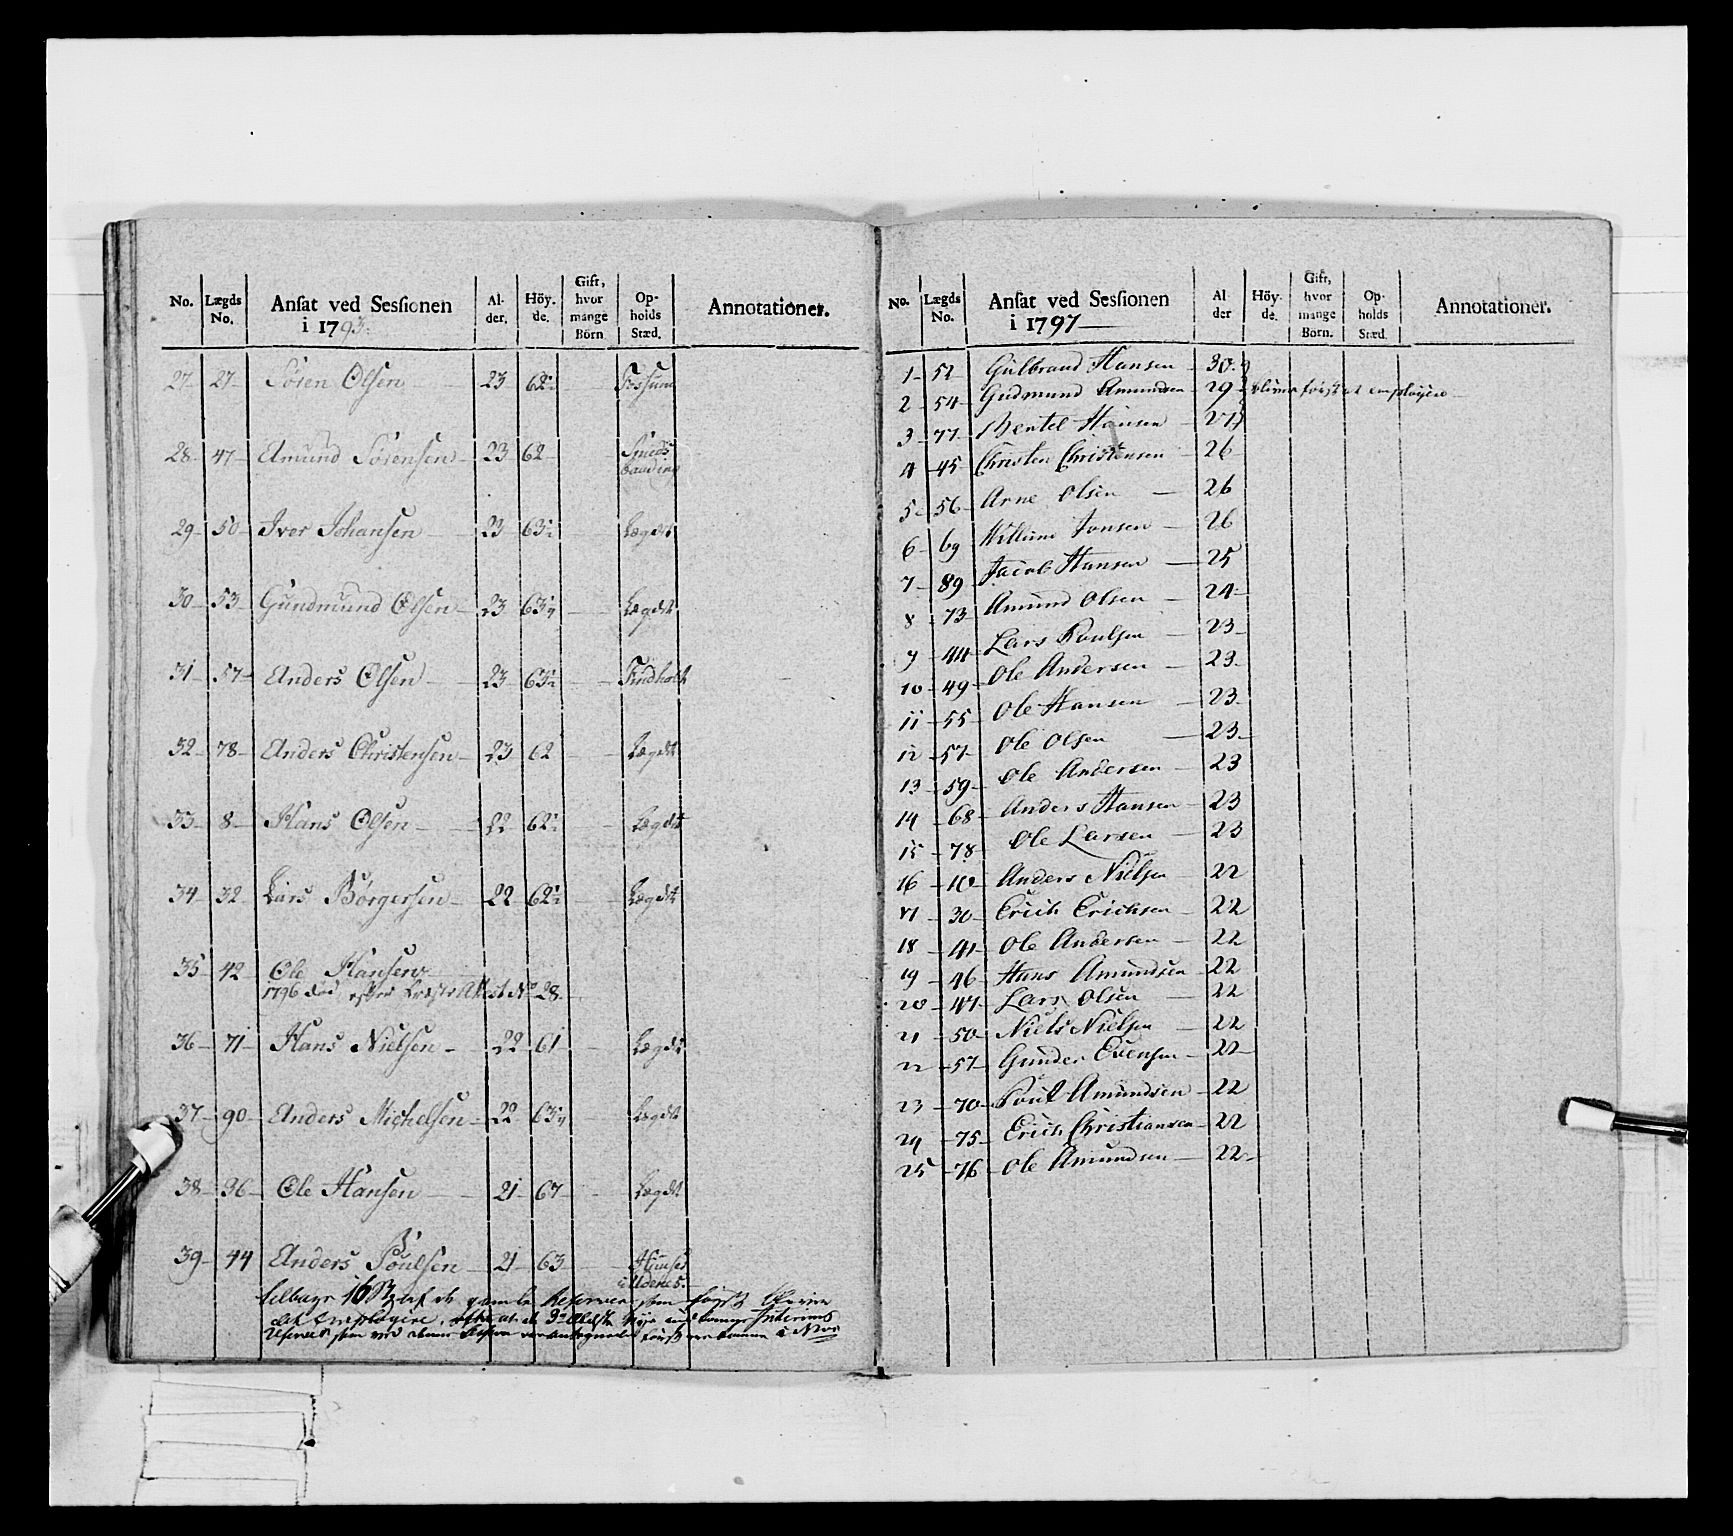 No. Lægds No. Ansat ved Sessionen i 1793. Alder. Höyde. Gift, hvor mange Börn Opholds Stæd. Annotationer.
27 27 Sören Olsen 23 62½ Fossum
28 47 Amund Sörensen 23 62
29 50 Iver Johansen 23 63½ Lægdet
30 53 Gundmund Olsen 23 63¼ Lægdet
31 57 Anders Olsen 23 63½ Findholt
32 78 Anders Christensen 23 62 Lægdet
33 8 Hans Olsen 22 62½ Lægdet
34 32 Lars Börgersen 22 62½ Lægdet
35 42 Ole Hansen
1796 död, efter Attest No 28
36 71 Hans Nielsen 22 61 Lægdet
37 90 Anders Michelsen 22 63¼ Lægdet
38 96 Ole Hansen 21 67 Lægdet
39 44 Anders Poulsen 21 63
16 af de gamle Reserver som först
No. Lægds No. Ansat ved Sessionen i 1797 Alder Höyde. Gift, hvor mange Börn. Opholds Stæd. Annotationer.
1 52 Gulbrand Hansen 30
2 54 Gudmund Amundsen 29 bliver först at employere
3 77 Bertel Hansen 27
4 45 Christen Christensen 26
5 56 Arne Olsen 26
6 69 Willum Jonsen 26
7 89 Jacob Hansen 25
8 73 Amund Olsen 24
9 44 Lars Poulsen 23
10 49 Ole Andersen 23
11 55 Ole Hansen 23
12 57 Ole Olsen 23
13 59 Ole Andersen 23
14 68 Anders Hansen 23
15 78 Ole Larsen 23
16 10 Anders Nielsen 22
17 30 Erich Erichsen 22
18 41 Ole Andersen 22
19 46 Hans Amundsen 22
20 47 Lars Olsen 22
21 50 Niels Nielsen 22
22 57 Gunder Evensen 22
23 70 Poul Amundsen 22
24 75 Erich Christiansen 22
25 76 Ole Amundsen 22